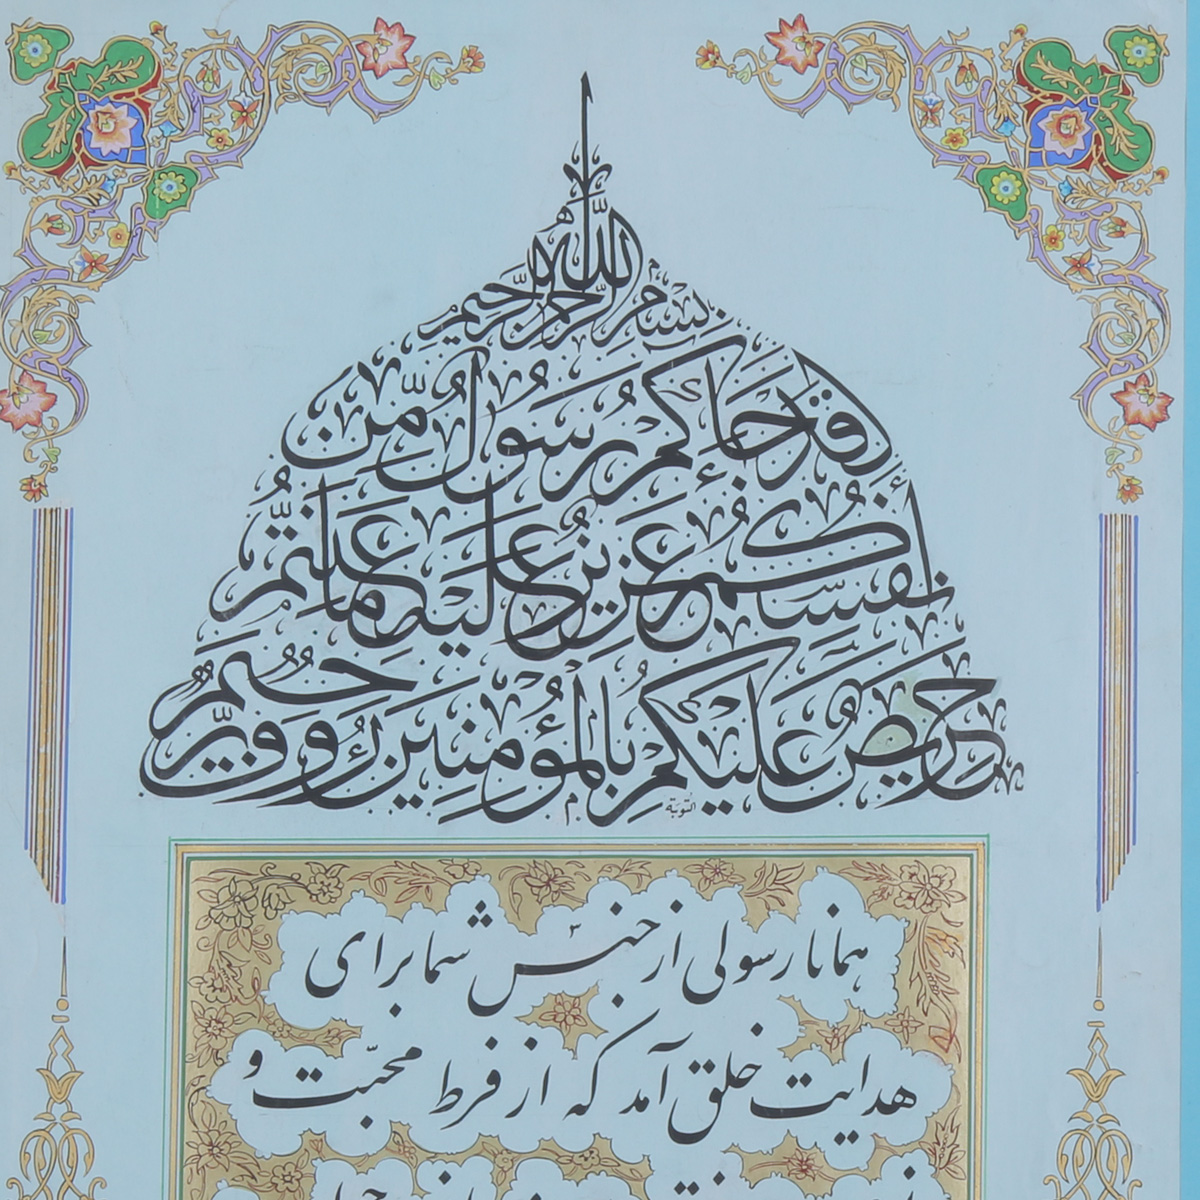 بسم الله الرحمن الرحیم
لَقَد جَاءَكُمْ رَسُولٌ مِّن
أَنفُسِكُمْ عَزِيزٌ عَلَيْهِ مَا عَنِتُّمْ
حَرِيصٌ عَلَيْكُمْ بِالْمُؤْمِنِينَ رَءُوفٌ رَّحِيمٌ
التوبة
همانا رسولی از جنس شما برای
هدایت خلق آمد که از فرط محبّت و